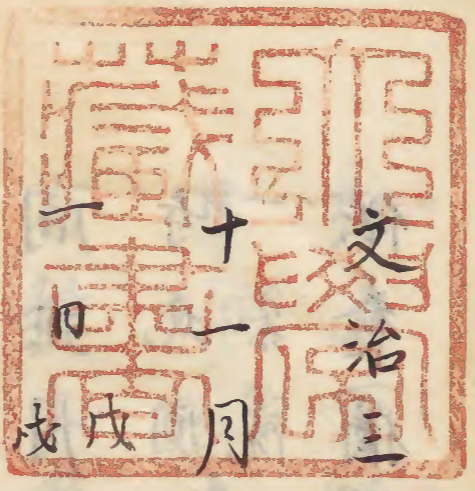 文治三
十一月
一日戊戌
藏書